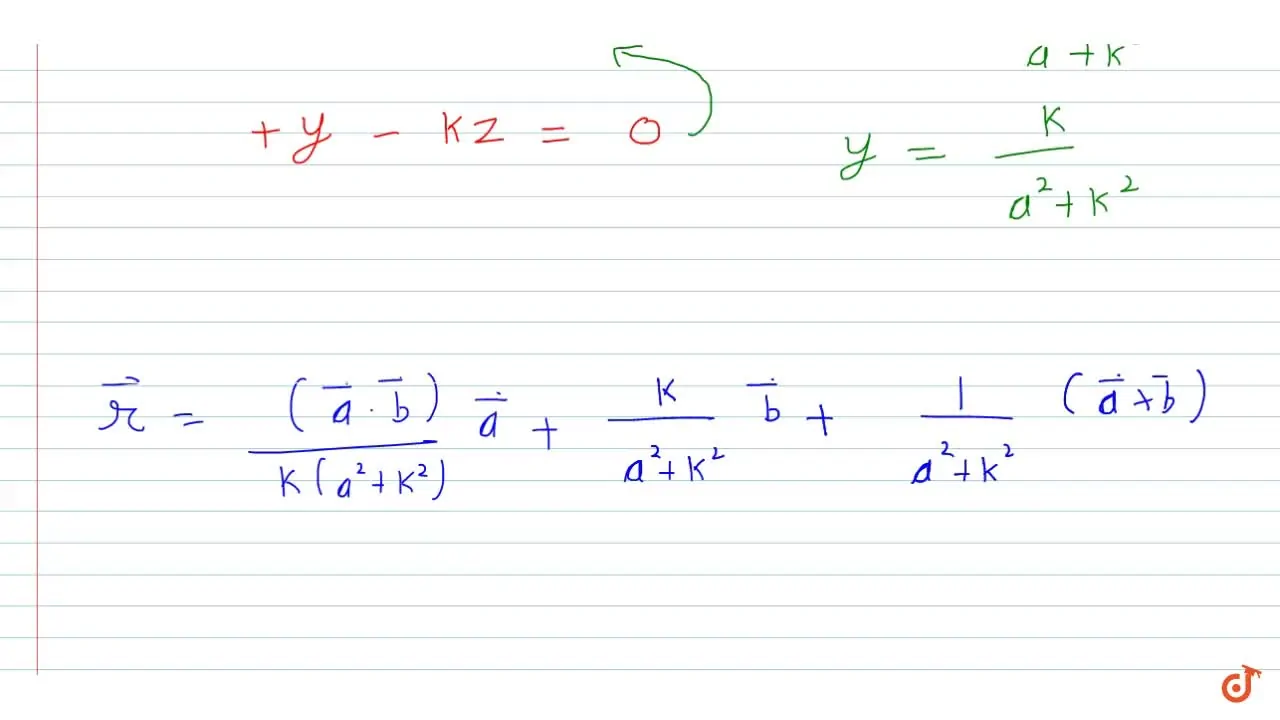 a + k
+ y - kz = 0
y = k / (a² + k²)
r⃗ = (a⃗ . b⃗) / k(a² + k²) a⃗ + k / (a² + k²) b⃗ + 1 / (a² + k²) (a⃗ × b⃗)